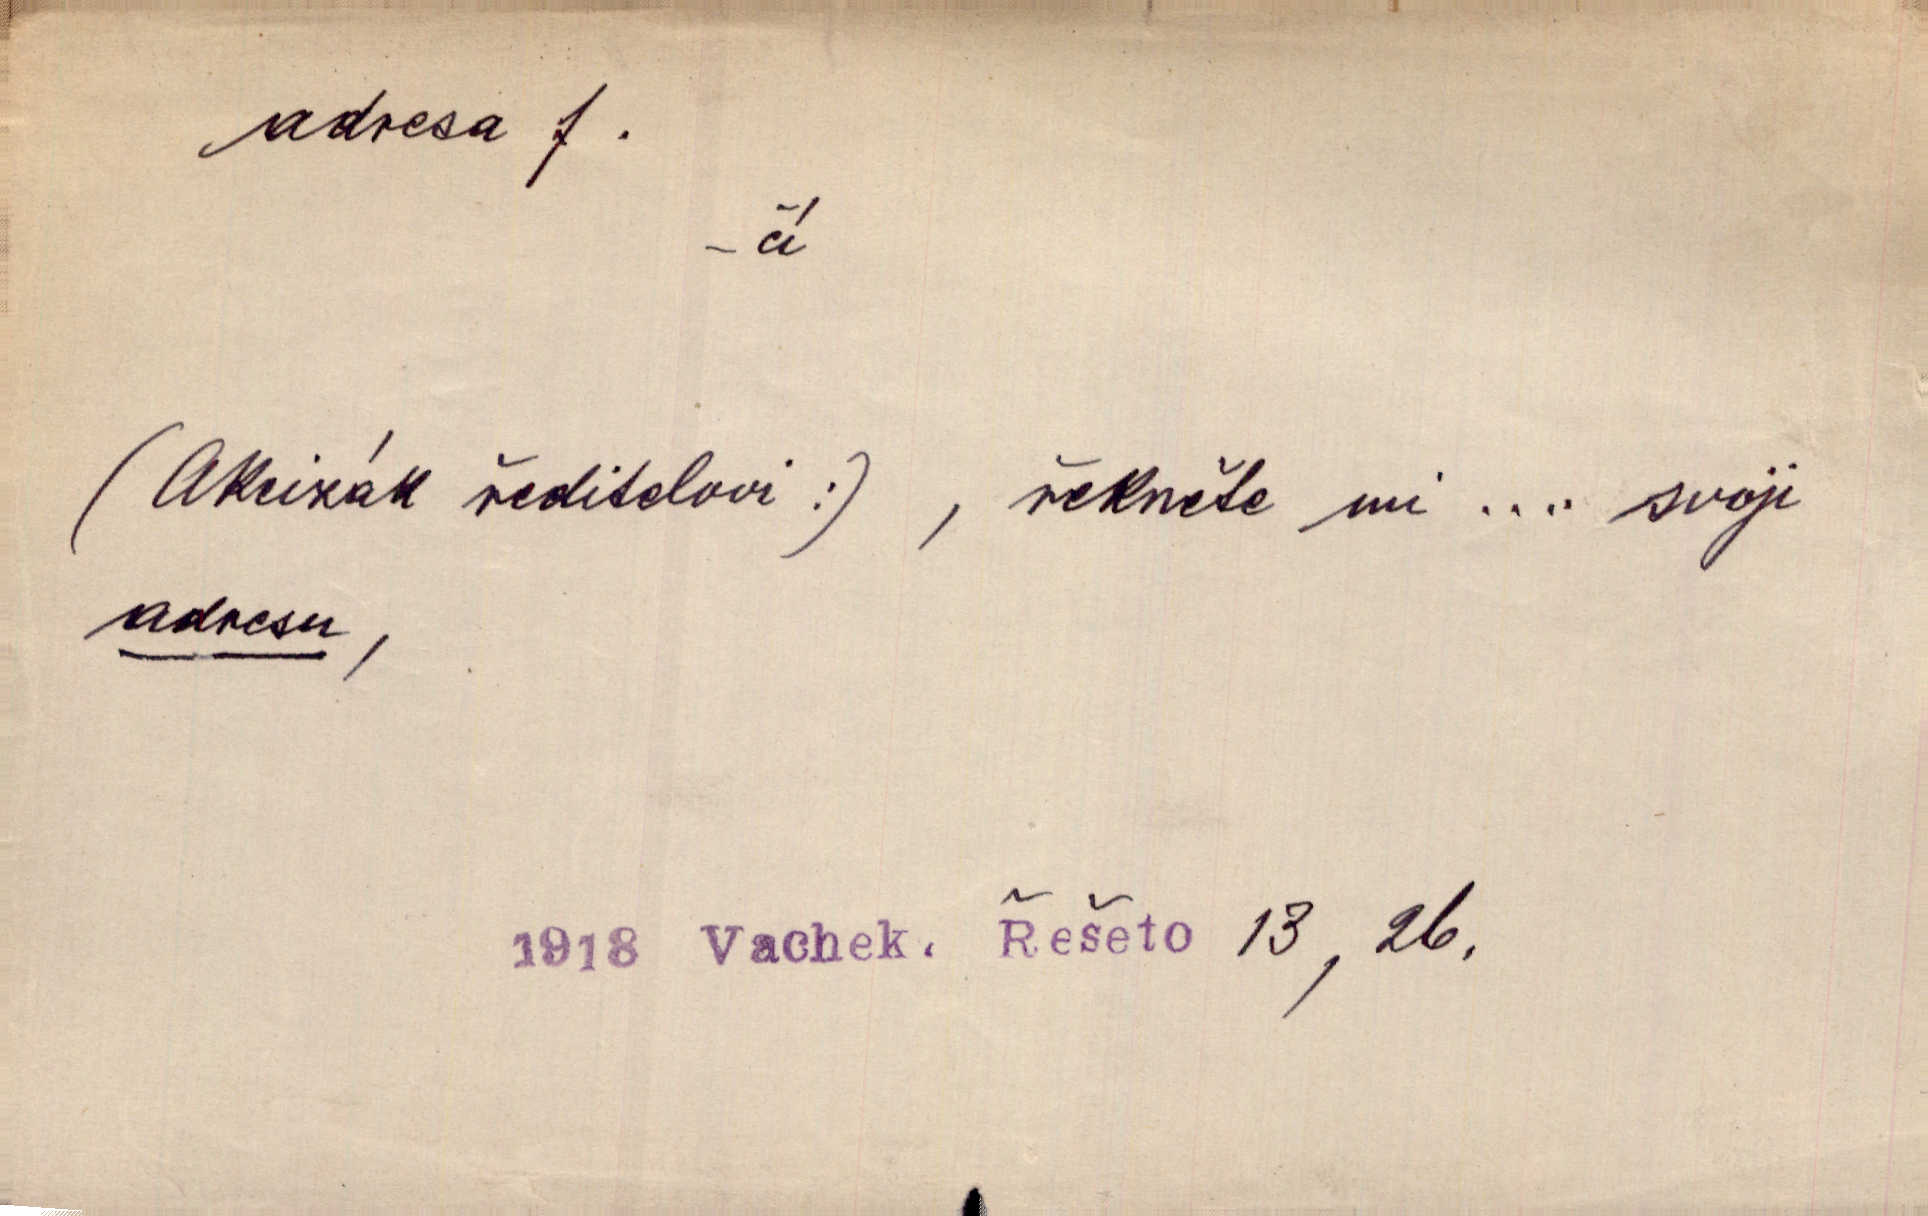 adresa f.
- čí
(Akcizák ředitelovi:) , řekněte mi .... svoji
adresu,
1918 Vachek. Řešeto 13, 26.